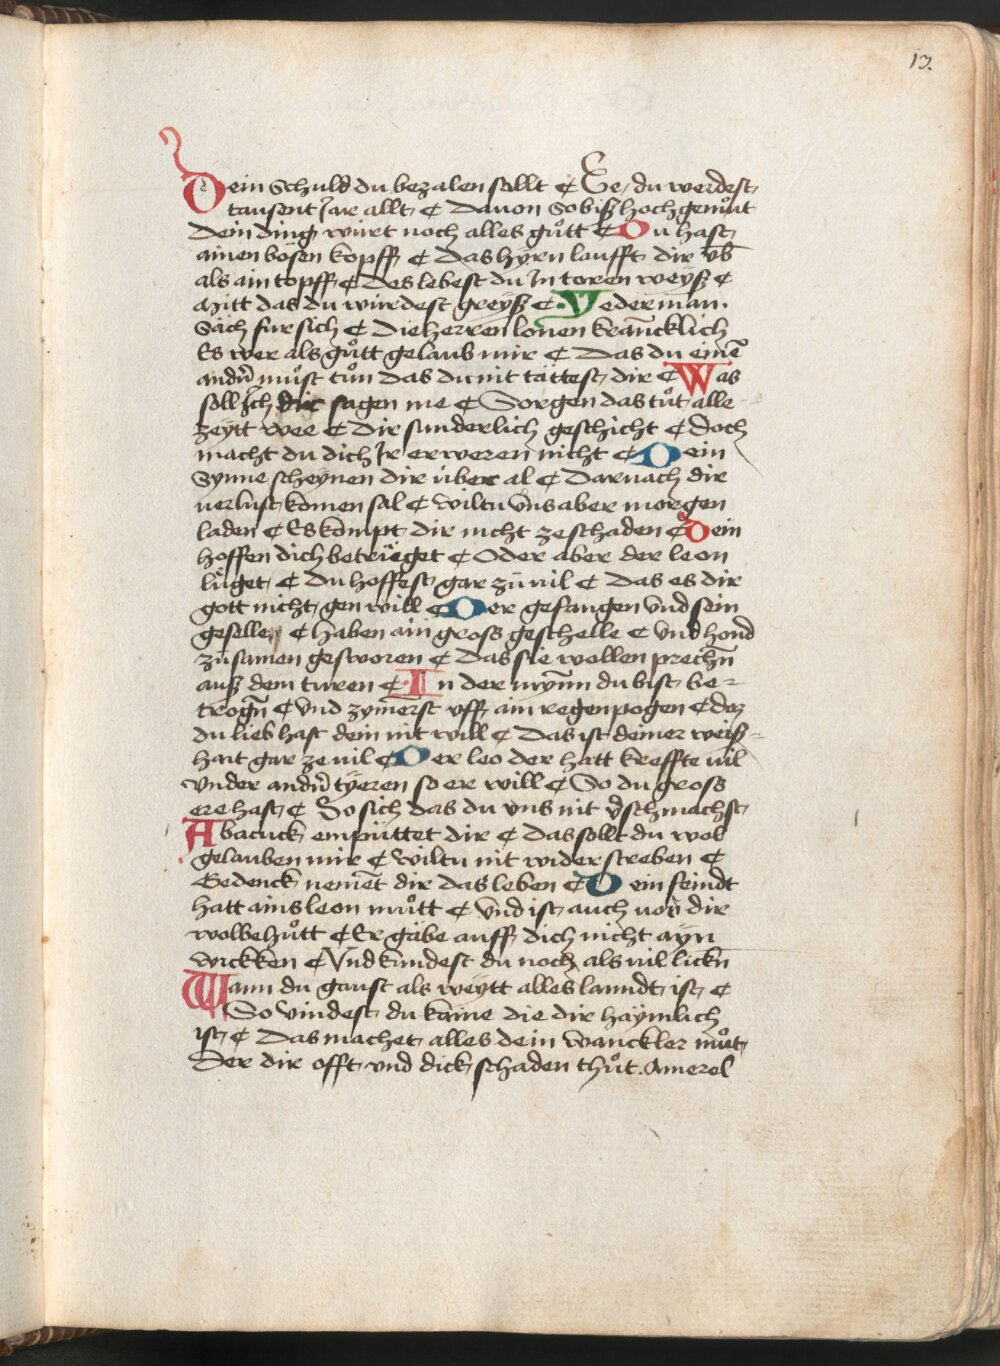 13.
Dein Schuld du bezalen sollt ¢ Ee du werdest
tausent Jar allt ¢ Dauon So biß hoch gemůt
Dein ding wirt noch alles gůtt ¢ Du hast
ainen bösen kopff ¢ das hyrn laufft dir vb̄
als ain topff ¢ Des lebest du Jn toren weyß ¢
Mitt das du würdest greyß ¢ Yederman
Säch für sich ¢ Die herren lonen kräncklich
Es wer als gůtt gelaub mir ¢ Das du einē
andn̄ můst tůn das du nit tättest dir ¢ Was
soll Jch dir sagen me ¢ Sorgen das tůt alle
zeytt wee ¢ Dir sunderlich geschicht ¢ Doch
macht du dich Jr erweren nicht ¢ Dein
Synne scheynen dir über al ¢ Darnach dir
uerlust komen sal ¢ Wiltu vns aber morgen
laden ¢ Es kompt dir nicht ze schaden ¢ Dein
hoffen dich betrüeget ¢ Oder aber der leon
lüget ¢ Du hoffest gar zů uil ¢ Das es dir
gott nicht gen will ¢ Der gefangen vnd sein
geselle ¢ Haben ain gross geschelle ¢ Vnd hond
zůsamen gesworen ¢ Das sie wollen prechn̄
auß dem turen ¢ In der mynn du bist be=
trogn̄ ¢ Vnd zymerst vff ain regenpogen ¢ Dz
du lieb hast dein nit will ¢ Das ist deiner weiß=
hait gar ze uil ¢ Der leo der hatt kreffte uil
vnder andn̄ tyeren so er will ¢ So du gross
ere hast ¢ So sich das du vns nit v̄schmachst
Abacuck empüttet dir ¢ Das sollt du wol
gelauben mir ¢ Wiltu nit widerstreben ¢
Gedenck nemēt dir das leben ¢ Dein feindt
hatt ains leon můtt ¢ Vnd ist auch vor dir
wolbehůtt ¢ Er gäbe auff dich nicht ayn
wickken ¢ Vnd kundest du noch als uil lickn̄
Wann du gaust als weytt alles lanndt ist ¢
So vindest du kaine die dir haymlich
ist ¢ Das machet alles dein wanckler můt
Der dir offt vnd dick schaden thůt. Amerel